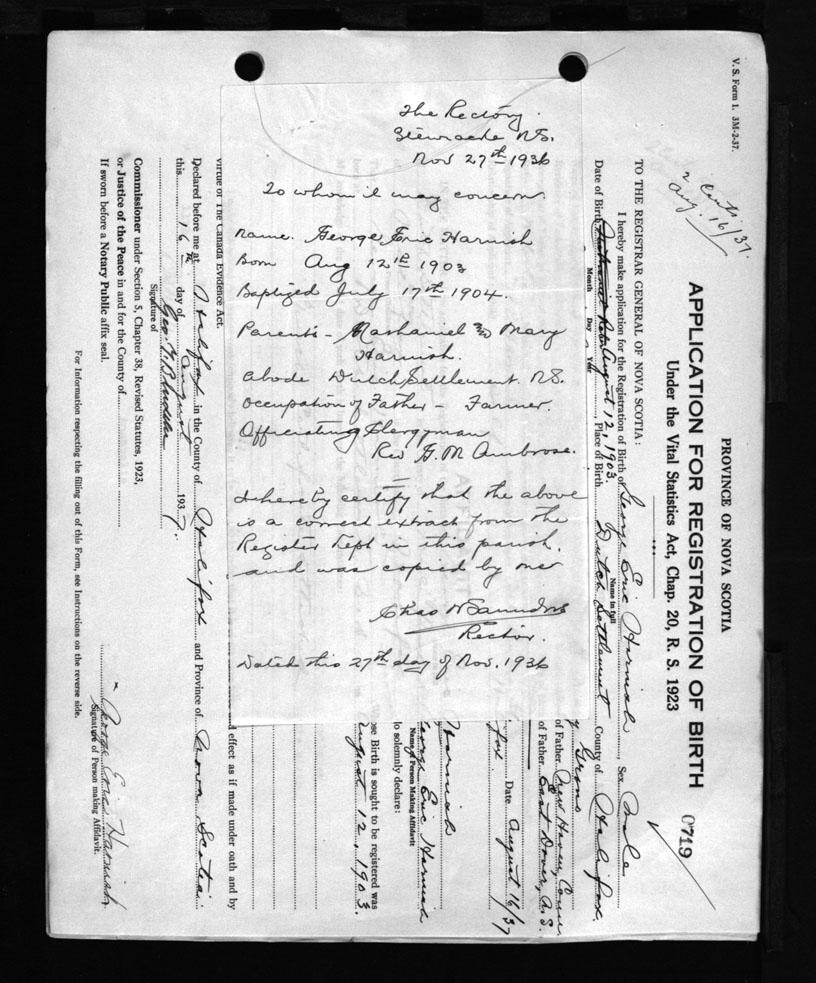 The Rectory
Stewiacke N.S.
Nov 27th 1936
To whom it may concern
Name. George Eric Harnish
Born Aug 12th 1903
Baptized July 17th 1904.
Parents - Nathaniel & Mary
Harnish.
Abode Dutch Settlement. N.S.
Occupation of Father - Farmer.
Officiating Clergyman
Rev G. M Ambrose.
I hereby certify that the above
is a correct extract from the
Register kept in this parish.
and was copied by me
Chas W Saunders
Rector.
Dated this 27th day of Nov. 1936
V. S. Form 1. 3M-2-37.
Aug. 16/37.
PROVINCE OF NOVA SCOTIA
APPLICATION FOR REGISTRATION OF BIRTH
Under the Vital Statistics Act, Chap. 20, R. S. 1923
0719
TO THE REGISTRAR GENERAL OF NOVA SCOTIA:
I hereby make application for the Registration of Birth of George Eric Harnish, Sex Male
Name in full
Date of Birth August 12, 1903. Place of Birth Dutch Settlement County of Halifax.
Month Day Year
of Father New Haven, Conn
of Father East Dover, N.S.
Date August 16/37
Harnish
George Eric Harnish
Name of Person Making Affidavit
lo solemnly declare:
ose Birth is sought to be registered was
August 12, 1903.
effect as if made under oath and by
virtue of The Canada Evidence Act.
Declared before me at Halifax in the County of Halifax and Province of Nova Scotia
this 16th day of August 1937.
Signature of
Commissioner under Section 5, Chapter 38, Revised Statutes, 1923,
or Justice of the Peace in and for the County of
If sworn before a Notary Public affix seal.
George Eric Harnish
Signature of Person making Affidavit.
For Information respecting the filling out of this Form, see Instructions on the reverse side.